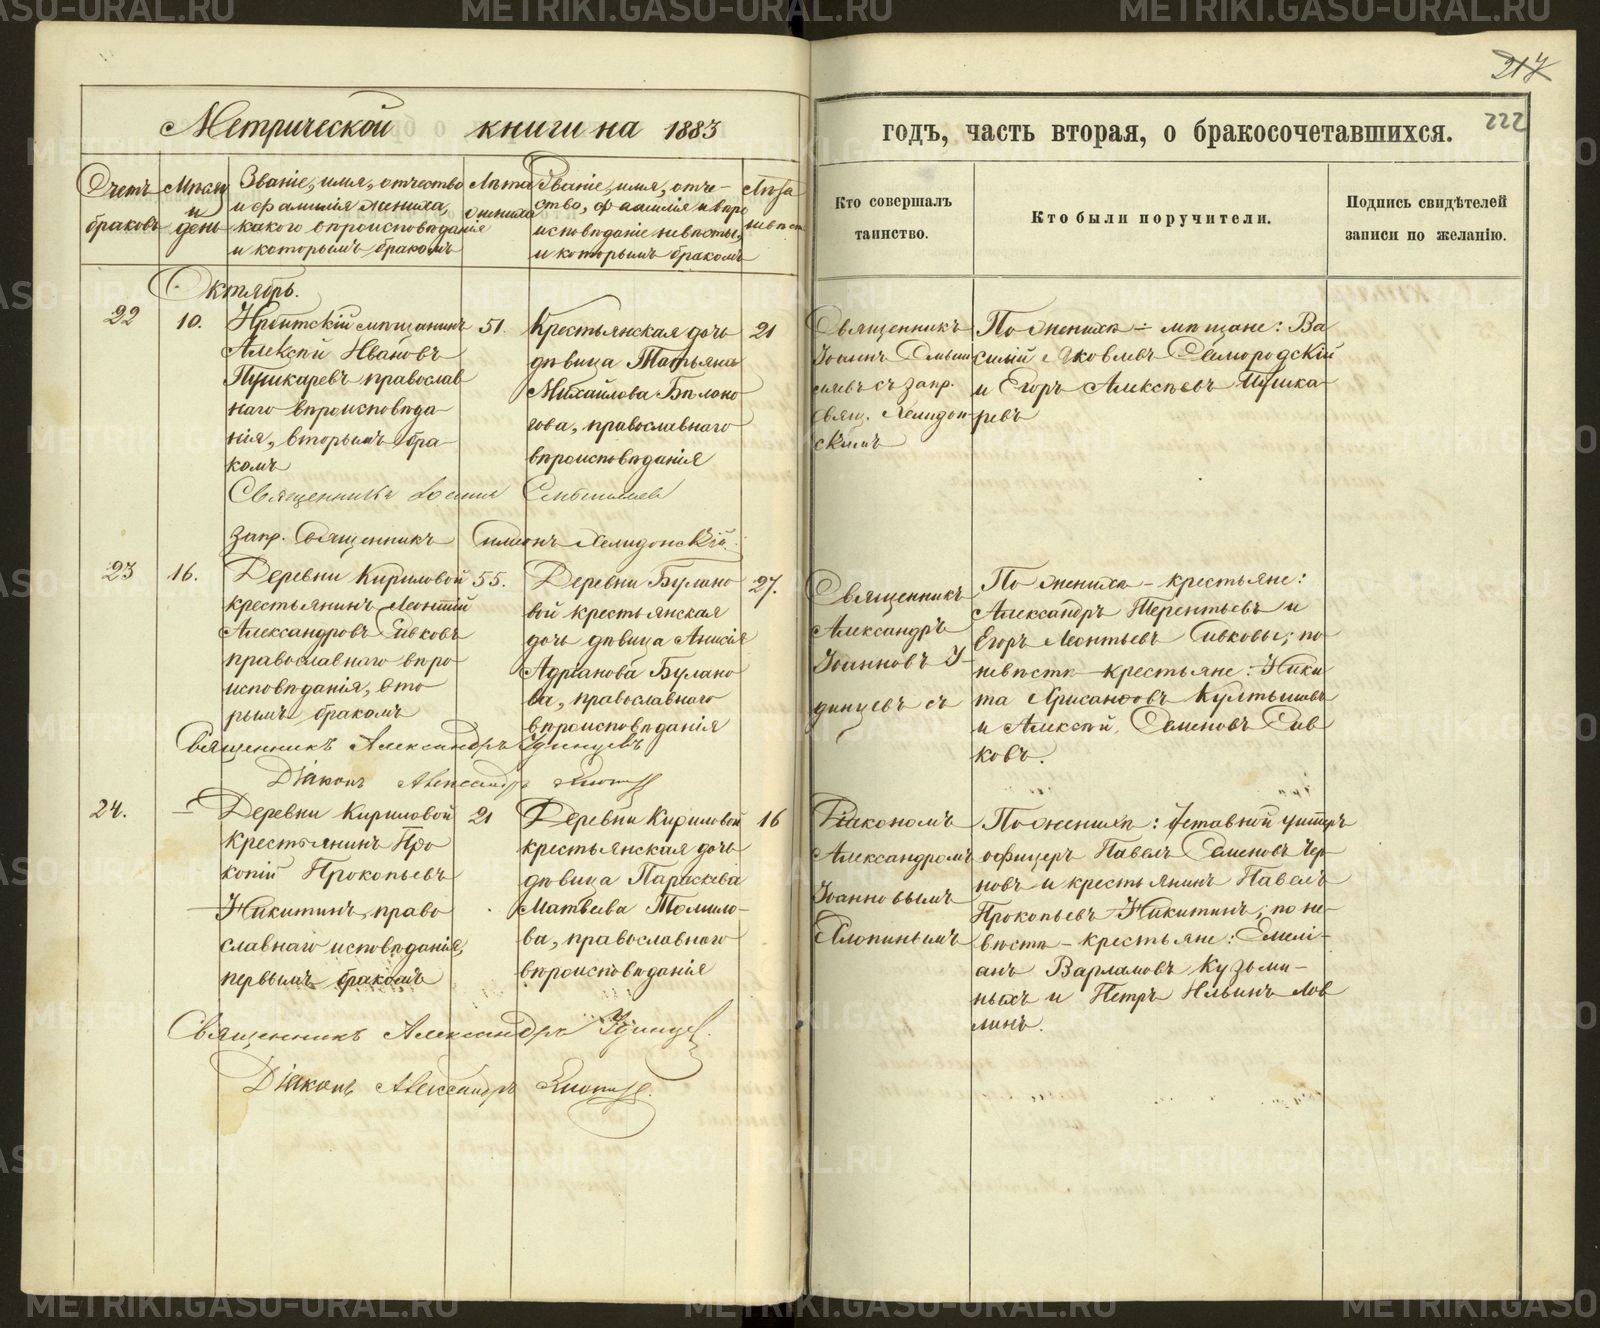 217
222
Метрической книги на 1883
годъ, часть вторая, о бракосочетавшихся.
Счетъ браковъ
Мѣсяц и день
Званіе, имя, отчество
и фамилія жениха,
какого вѣроисповѣданія
и которымъ бракомъ
Лѣта
жениха
Званіе, имя, отче-
ство, фамилія и вѣро
исповѣданіе невѣсты,
и которымъ бракомъ
Лѣта
невѣст
Кто совершалъ
таинство.
Кто были поручители.
Подпись свидѣтелей
записи по желанію.
Октябрь.
22
10.
Ирбитскій мѣщанинъ
Алексѣй Ивановъ
Пушкаревъ православ
наго вѣроисповѣда-
нія, вторымъ бра-
комъ
51.
Крестьянская дочь
дѣвица Татьяна
Михайлова Бѣлоно
гова, православнаго
вѣроисповѣданія
21
Священникъ
Іоаннъ
съ запр.
свящ. Хелидон-
скимъ
По женихѣ – мѣщане: Ва
силій Яковлевъ Самородскій
и Егоръ Алексѣевъ Пушка-
ревъ
Священникъ Іоаннъ
запр. Священникъ Симеонъ Хелидонскій.
23
16.
Деревни Кириловой
крестьянинъ Леонтій
Александровъ Сивковъ
православнаго вѣро
исповѣданія, вто
рымъ бракомъ
55.
Деревни Булано
вой крестьянская
дочь дѣвица Анисія
Адріанова Булано
ва, православнаго
вѣроисповѣданія
27.
Священникъ
Александръ
Іоанновъ У-
динцевъ съ
По женихѣ – крестьяне:
Александръ Терентьевъ и
Егоръ Леонтьевъ Сивковы; по
невѣстѣ – крестьяне: Ники
та Хрисанфовъ Култышевъ
и Алексѣй Семеновъ Сив
ковъ.
Священникъ Александръ Удинцевъ
Діаконъ Александръ
24.
–
Деревни Кириловой
крестьянинъ Про
копій Прокопьевъ
Никитинъ, право
славнаго исповѣданія,
первымъ бракомъ
21
Деревни Кириловой
крестьянская дочь
дѣвица Параскева
Матвеева Томило-
ва, православнаго
вѣроисповѣданія
16
Діакономъ
Александромъ
Іоанновымъ
Хлопинымъ
По женихѣ: Уставной унтеръ
офицеръ Павелъ Семеновъ Чер
новъ и крестьянинъ Павелъ
Прокопьевъ Никитинъ; по не-
вѣстѣ – крестьяне: Емелі-
анъ Варламовъ Кузьми-
ныхъ и Петръ Ильинъ Лов
Священникъ Александръ Удинцевъ.
Діаконъ Александръ
METRIKI.GASO-URAL.RU